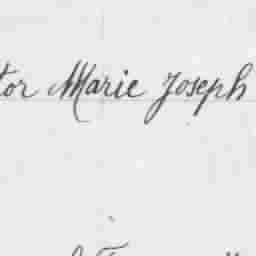 tor Marie Joseph